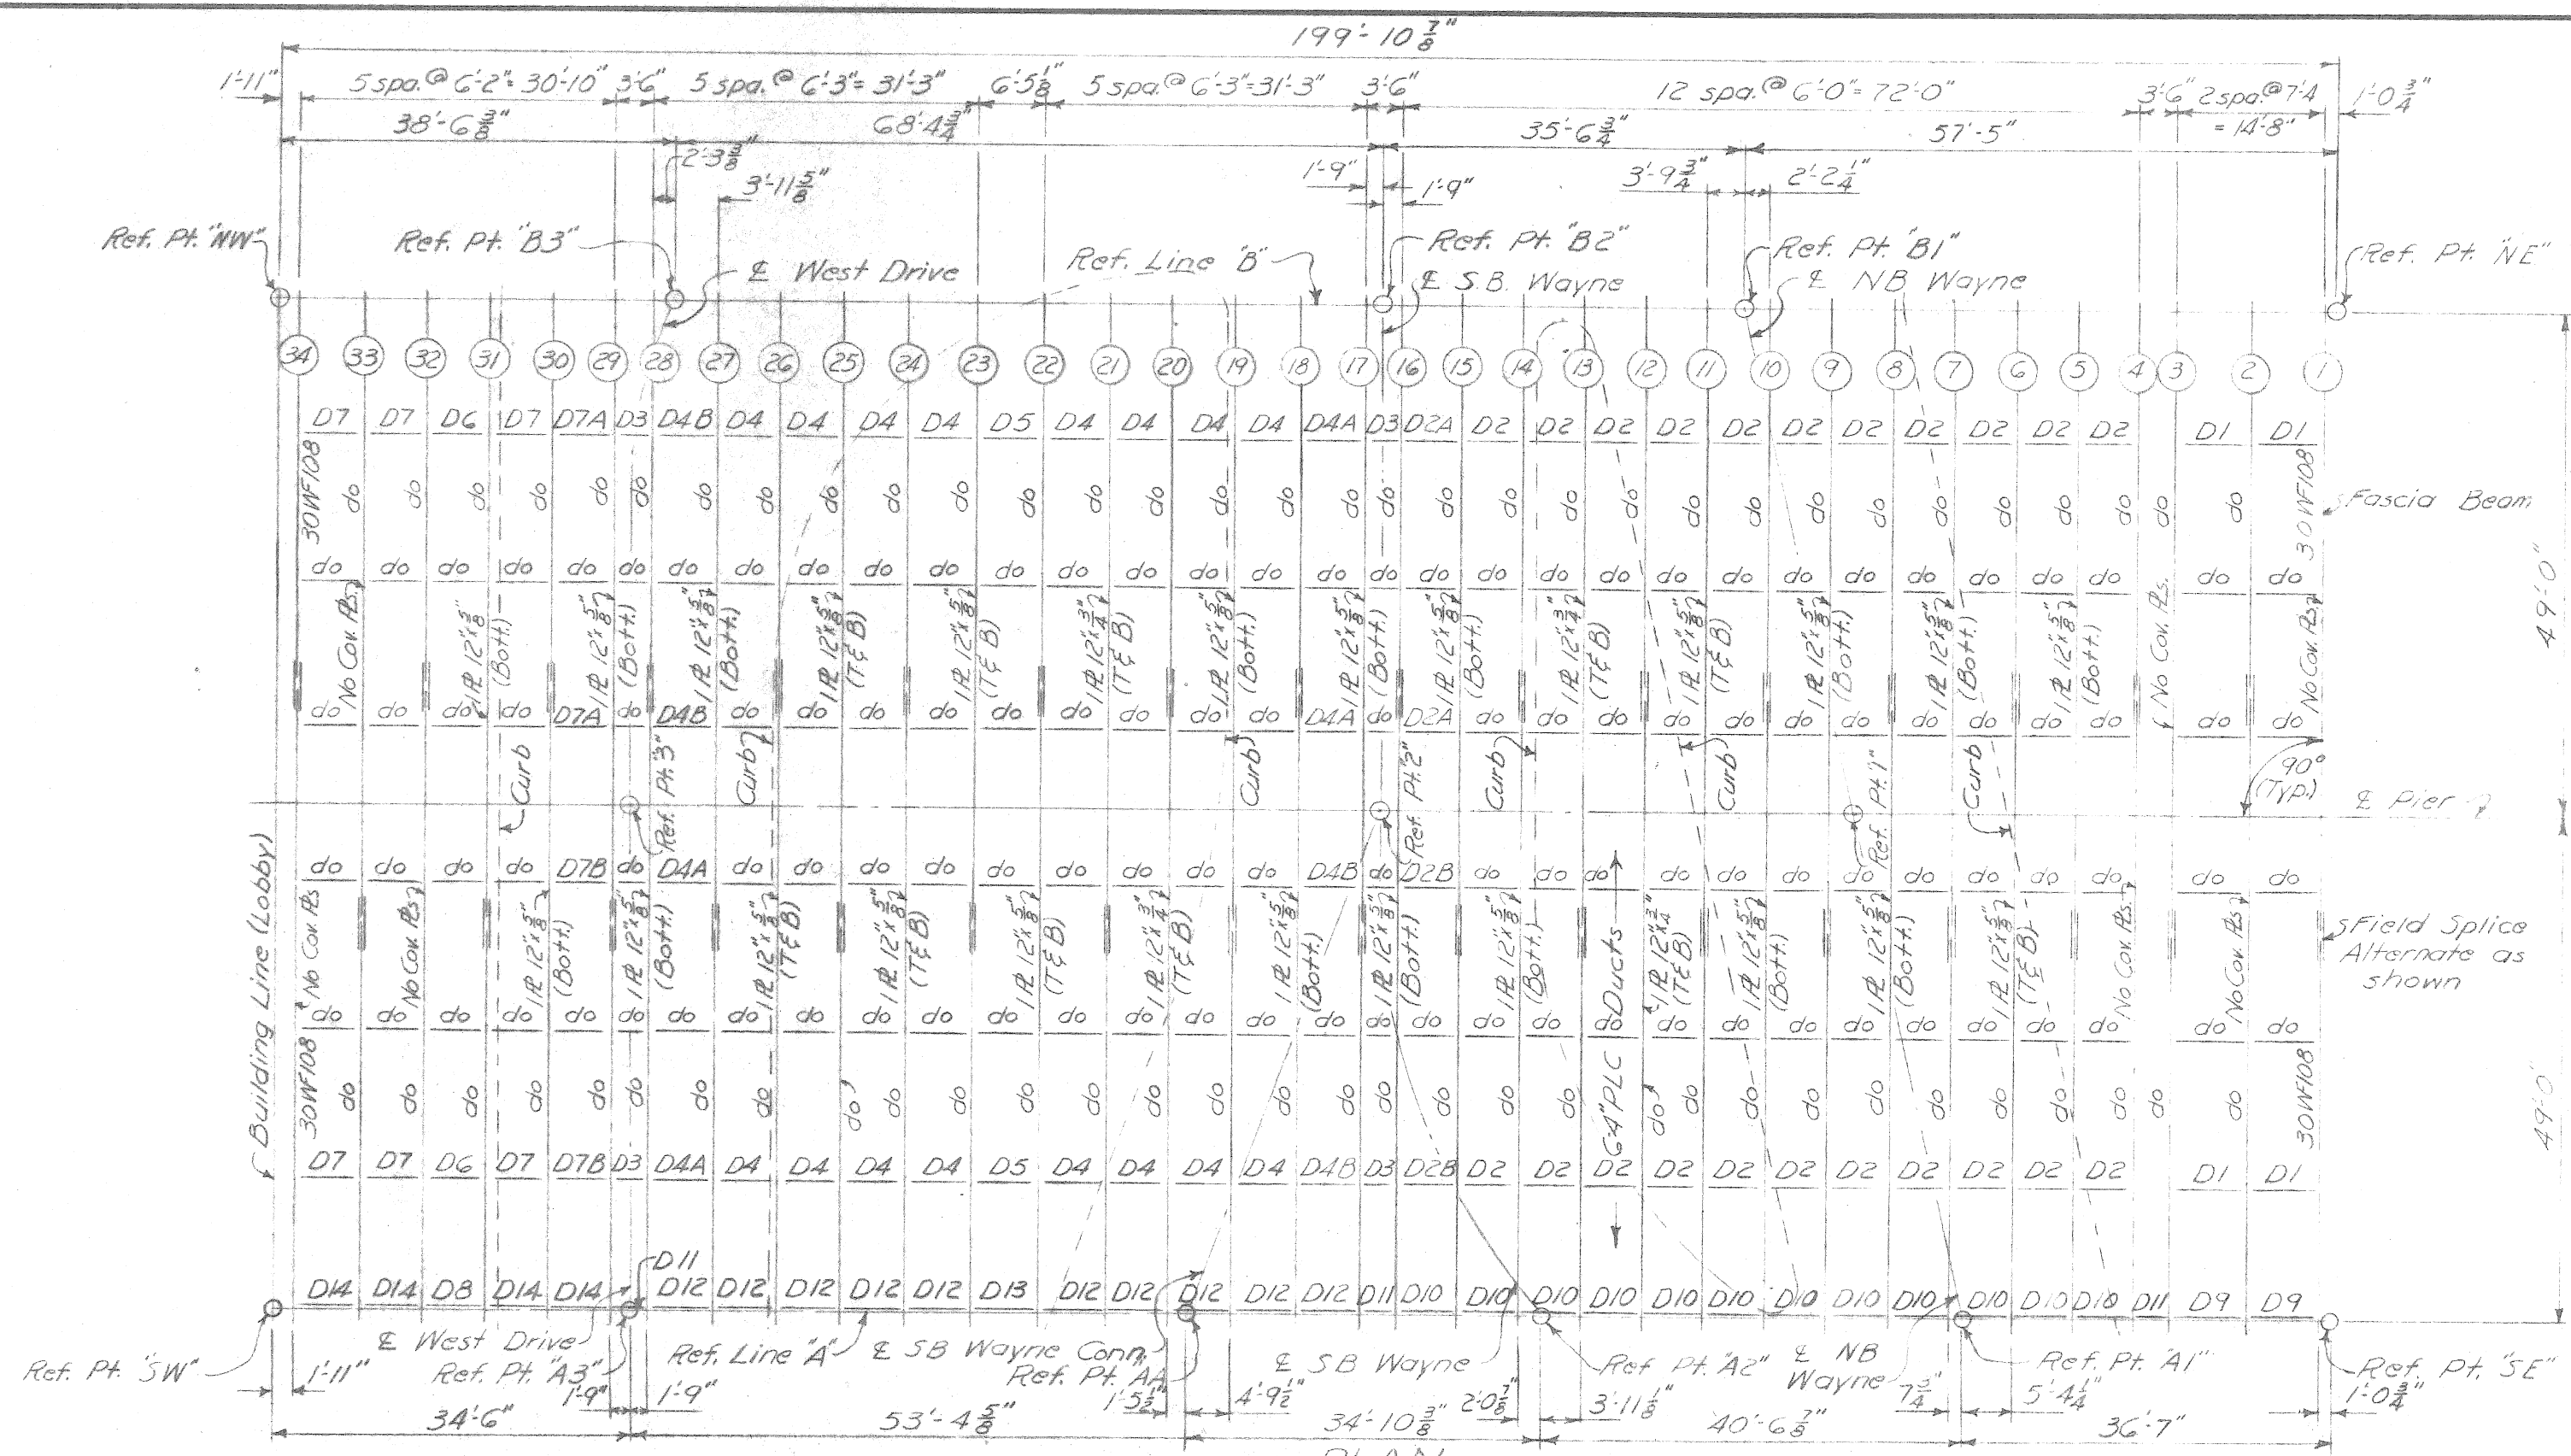 199'-10 7/8"
1'-11" 5 spa. @ 6'-2" = 30'-10" 3'-6" 5 spa. @ 6'-3" = 31'-3" 6'-5 1/8" 5 spa. @ 6'-3" = 31'-3" 3'-6" 12 spa. @ 6'-0" = 72'-0" 3'-6" 2 spa. @ 7'-4 1'-0 3/4"
= 14'-8"
38'-6 3/8" 68'-4 3/4" 35'-6 3/4" 57'-5"
2'-3 3/8" 1'-9" 3'-9 3/4" 2'-2 1/4"
3'-11 5/8" 1'-9"
Ref. Pt. "NW" Ref. Pt. "B3" Ref. Line "B" Ref. Pt. "B2" Ref. Pt. "B1" Ref. Pt. "NE"
℄ West Drive ℄ S.B. Wayne ℄ NB Wayne
34 33 32 31 30 29 28 27 26 25 24 23 22 21 20 19 18 17 16 15 14 13 12 11 10 9 8 7 6 5 4 3 2 1
D7 D7 D6 D7 D7A D3 D4B D4 D4 D4 D4 D5 D4 D4 D4 D4 D4A D3 D2A D2 D2 D2 D2 D2 D2 D2 D2 D2 D2 D2 D1 D1
30WF108 do do do do do do do do do do do do do do do do do do do do do do do do do do do do do do do do 30WF108
Fascia Beam
do do do do do do do do do do do do do do do do do do do do do do do do do do do do do do do do
No Cov. Pls.
1 ℙ 12"x5/8"
(Bott.)
1 ℙ 12"x5/8"
(Bott.)
1 ℙ 12"x5/8"
(Bott.)
1 ℙ 12"x5/8"
(T & B)
1 ℙ 12"x5/8"
(T & B)
1 ℙ 12"x3/4"
(T & B)
1 ℙ 12"x5/8"
(Bott.)
1 ℙ 12"x5/8"
(Bott.)
1 ℙ 12"x5/8"
(Bott.)
1 ℙ 12"x3/4"
(T & B)
1 ℙ 12"x5/8"
(T & B)
1 ℙ 12"x5/8"
(Bott.)
1 ℙ 12"x5/8"
(Bott.)
1 ℙ 12"x5/8"
(Bott.)
No Cov. Pls.
No Cov. Pls.
49'-0"
do do do do D7A do D4B do do do do do do do do do D4A do D2A do do do do do do do do do do do do do
Curb
Ref. Pt. "3"
Curb
Curb
Ref. Pt. "2"
Curb
Curb
Ref. Pt. "1"
Curb
90°
(Typ.)
℄ Pier
Building Line (Lobby)
do do do do D7B do D4A do do do do do do do do do D4B do D2B do do do do do do do do do do do do do
No Cov. Pls
No Cov. Pls
1 ℙ 12"x5/8"
(Bott.)
1 ℙ 12"x5/8"
(Bott.)
1 ℙ 12"x5/8"
(T & B)
1 ℙ 12"x5/8"
(T & B)
1 ℙ 12"x5/8"
(T & B)
1 ℙ 12"x3/4"
(T & B)
1 ℙ 12"x5/8"
(Bott.)
1 ℙ 12"x5/8"
(Bott.)
1 ℙ 12"x5/8"
(Bott.)
6-4" PLC Ducts
1 ℙ 12"x3/4"
(T & B)
1 ℙ 12"x5/8"
(Bott.)
1 ℙ 12"x5/8"
(Bott.)
1 ℙ 12"x5/8"
(T & B)
No Cov. Pls.
No Cov. Pls
Field Splice
Alternate as
shown
do do do do do do do do do do do do do do do do do do do do do do do do do do do do do do do do
30WF108 do do do do do do do do do do do do do do do do do do do do do do do do do do do do do do 30WF108
49'-0"
D7 D7 D6 D7 D7B D3 D4A D4 D4 D4 D4 D5 D4 D4 D4 D4 D4B D3 D2B D2 D2 D2 D2 D2 D2 D2 D2 D2 D2 D2 D1 D1
D11
D14 D14 D8 D14 D14 D12 D12 D12 D12 D12 D13 D12 D12 D12 D12 D12 D11 D10 D10 D10 D10 D10 D10 D10 D10 D10 D10 D10 D10 D11 D9 D9
℄ West Drive Ref. Line "A" ℄ SB Wayne Conn. ℄ SB Wayne Ref Pt. "A2" ℄ NB Wayne Ref. Pt. "A1" Ref. Pt. "SE"
Ref. Pt. "SW" 1'-11" Ref. Pt. "A3" Ref. Pt. AA
1'-9" 1'-9" 1'-5 1/2" 4'-9 1/2" 2'-0 7/8" 3'-11 1/8" 7 3/4" 5'-4 1/4" 1'-0 3/4"
34'-6" 53'-4 5/8" 34'-10 3/8" 40'-6 7/8" 36'-7"
PLAN